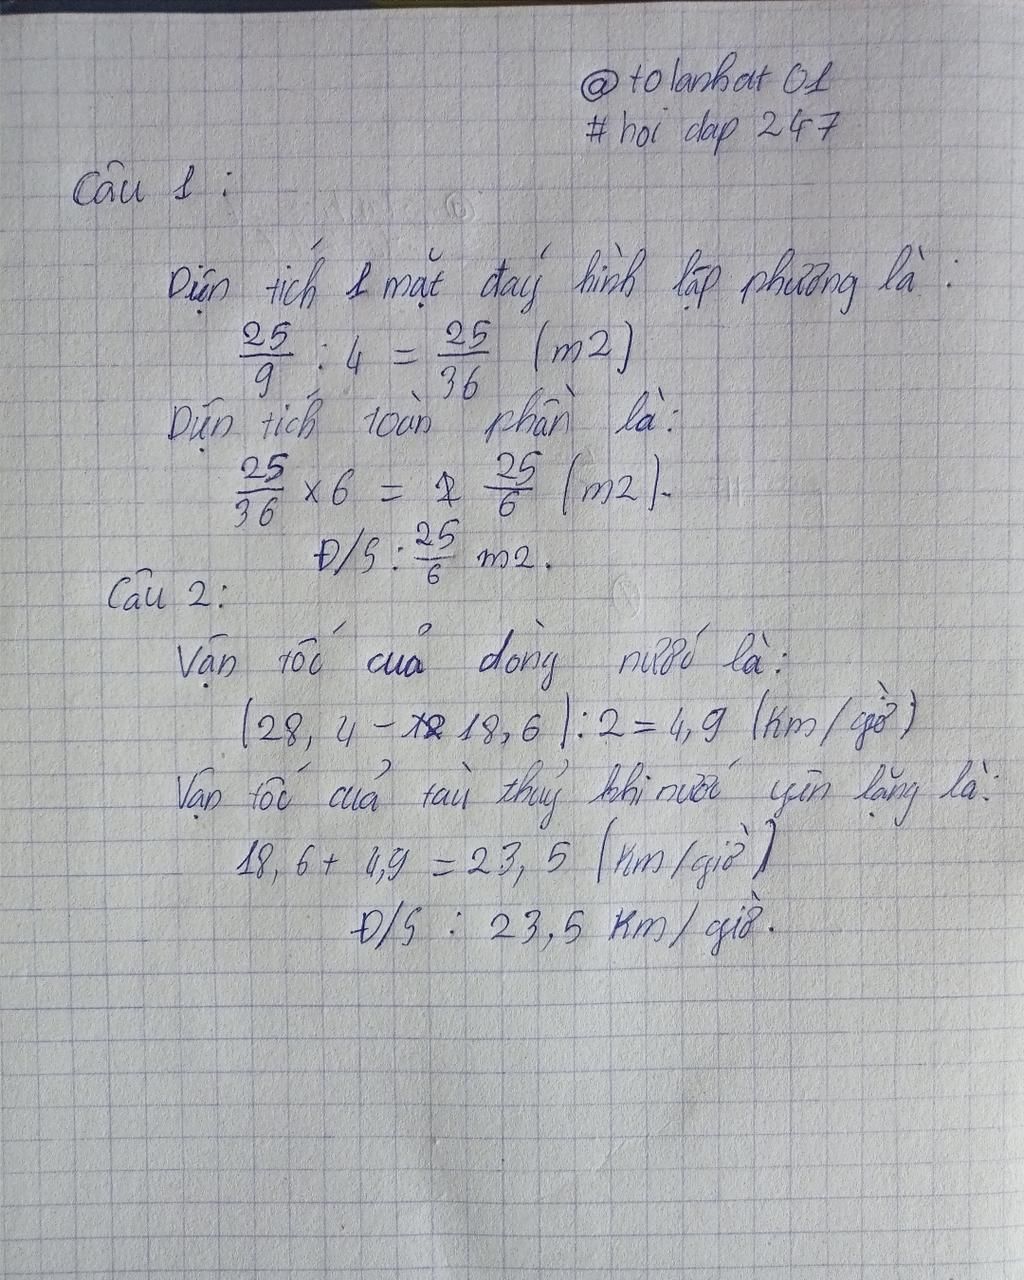 @tolanhat 01
# hoi dap 247
Câu 1 :
Diện tích 1 mặt đáy hình lập phương là :
25/9 : 4 = 25/36 (m2)
Diện tích toàn phần là:
25/36 x 6 = 25/6 (m2).
Đ/S : 25/6 m2.
Câu 2:
Vận tốc của dòng nước là:
(28,4 - 18,6) : 2 = 4,9 (Km/giờ)
Vận tốc của tàu thủy khi nước yên lặng là:
18,6 + 4,9 = 23,5 (Km/giờ)
Đ/S : 23,5 Km/giờ.